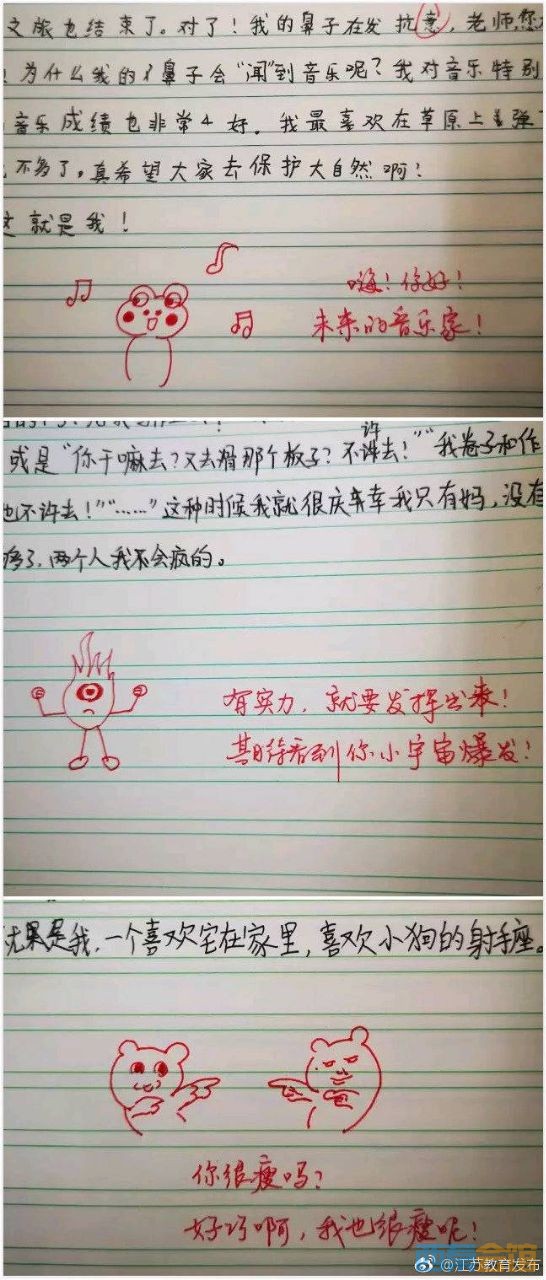 文旅也结束了。对了！我的鼻子在发抗意，老师，您
为什么我的鼻子会“闻”到音乐呢？我对音乐特别
音乐成绩也非常好。我最喜欢在草原上弹
不多了。真希望大家去保护大自然啊！
这就是我！
嗨！你好！
未来的音乐家！
或是“你干嘛去？又去滑那个板子？不许去！”“我卷子和作
也不许去！”“……”这种时候我就很庆幸我只有妈，没有
疼了，两个人我不会疯的。
有实力，就要发挥出来！
期待看到你小宇宙爆发！
就是我，一个喜欢宅在家里，喜欢小狗的射手座。
你很瘦吗？
好巧啊，我也很瘦呢！
@江苏教育发布